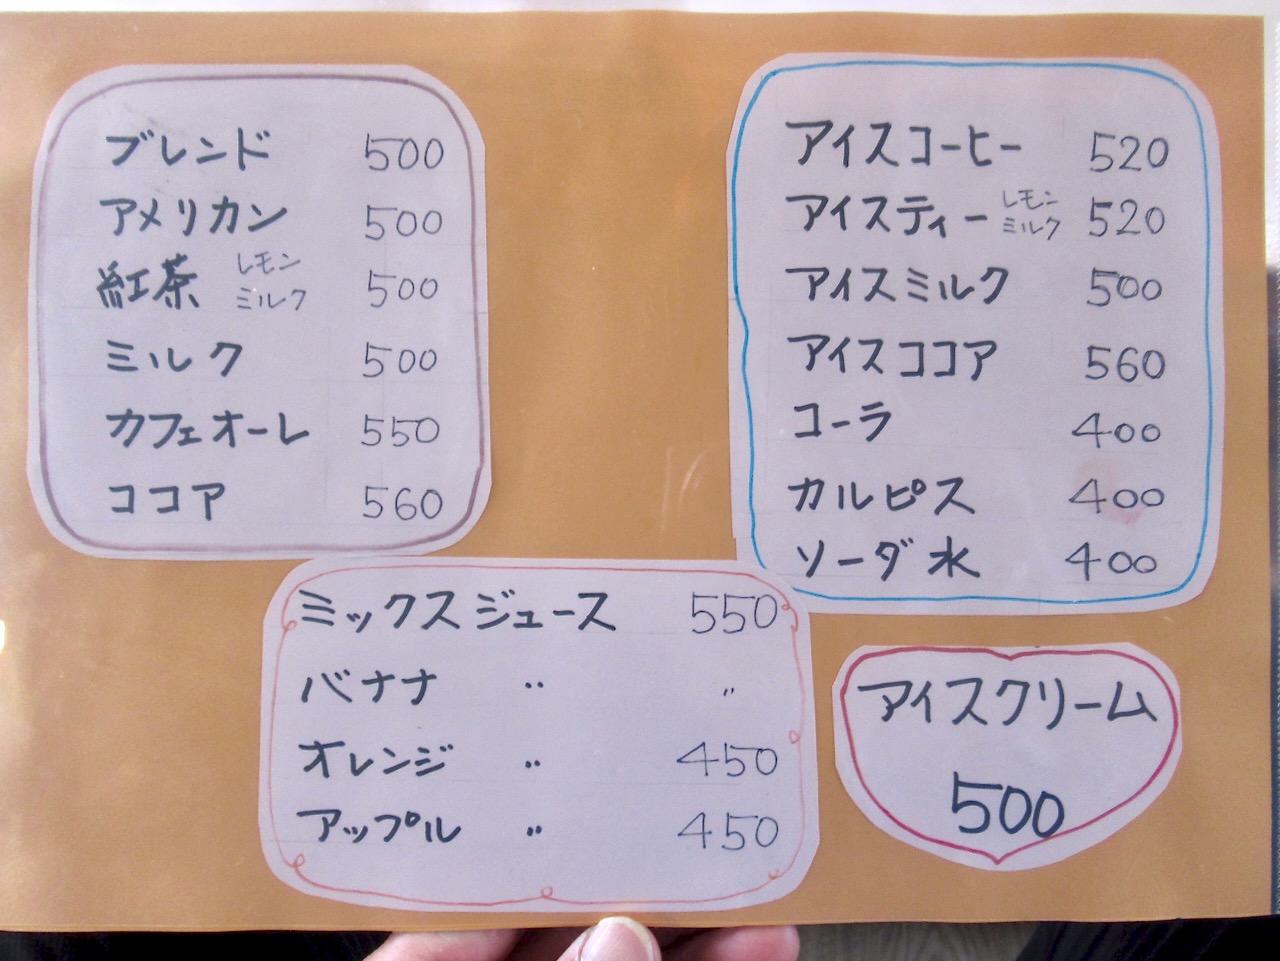 ブレンド 500
アメリカン 500
紅茶 レモン ミルク 500
ミルク 500
カフェオーレ 550
ココア 560
アイスコーヒー 520
アイスティー レモン ミルク 520
アイスミルク 500
アイスココア 560
コーラ 400
カルピス 400
ソーダ水 400
ミックスジュース 550
バナナ 〃 〃
オレンジ 〃 450
アップル 〃 450
アイスクリーム
500